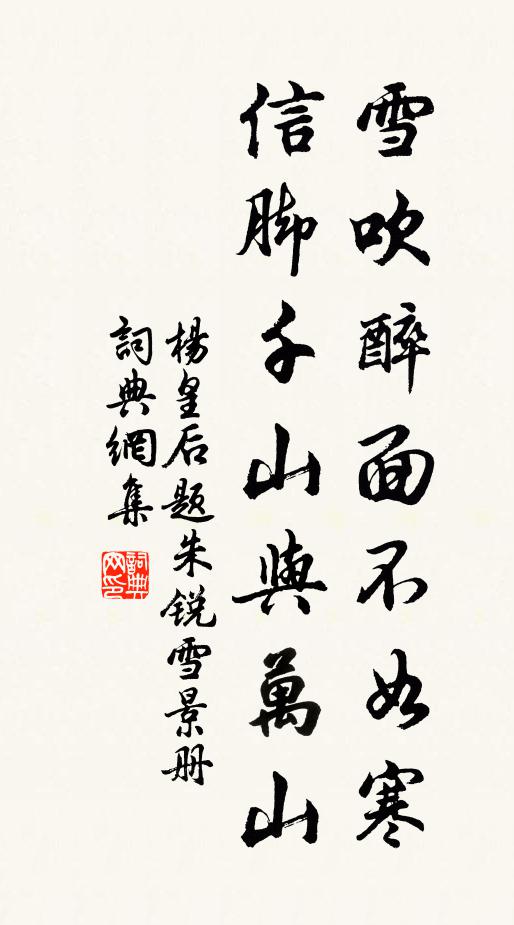 雪吹醉面不如寒
信脚千山與萬山
楊皇后题朱锐雪景册
詞典網集
詞典网印